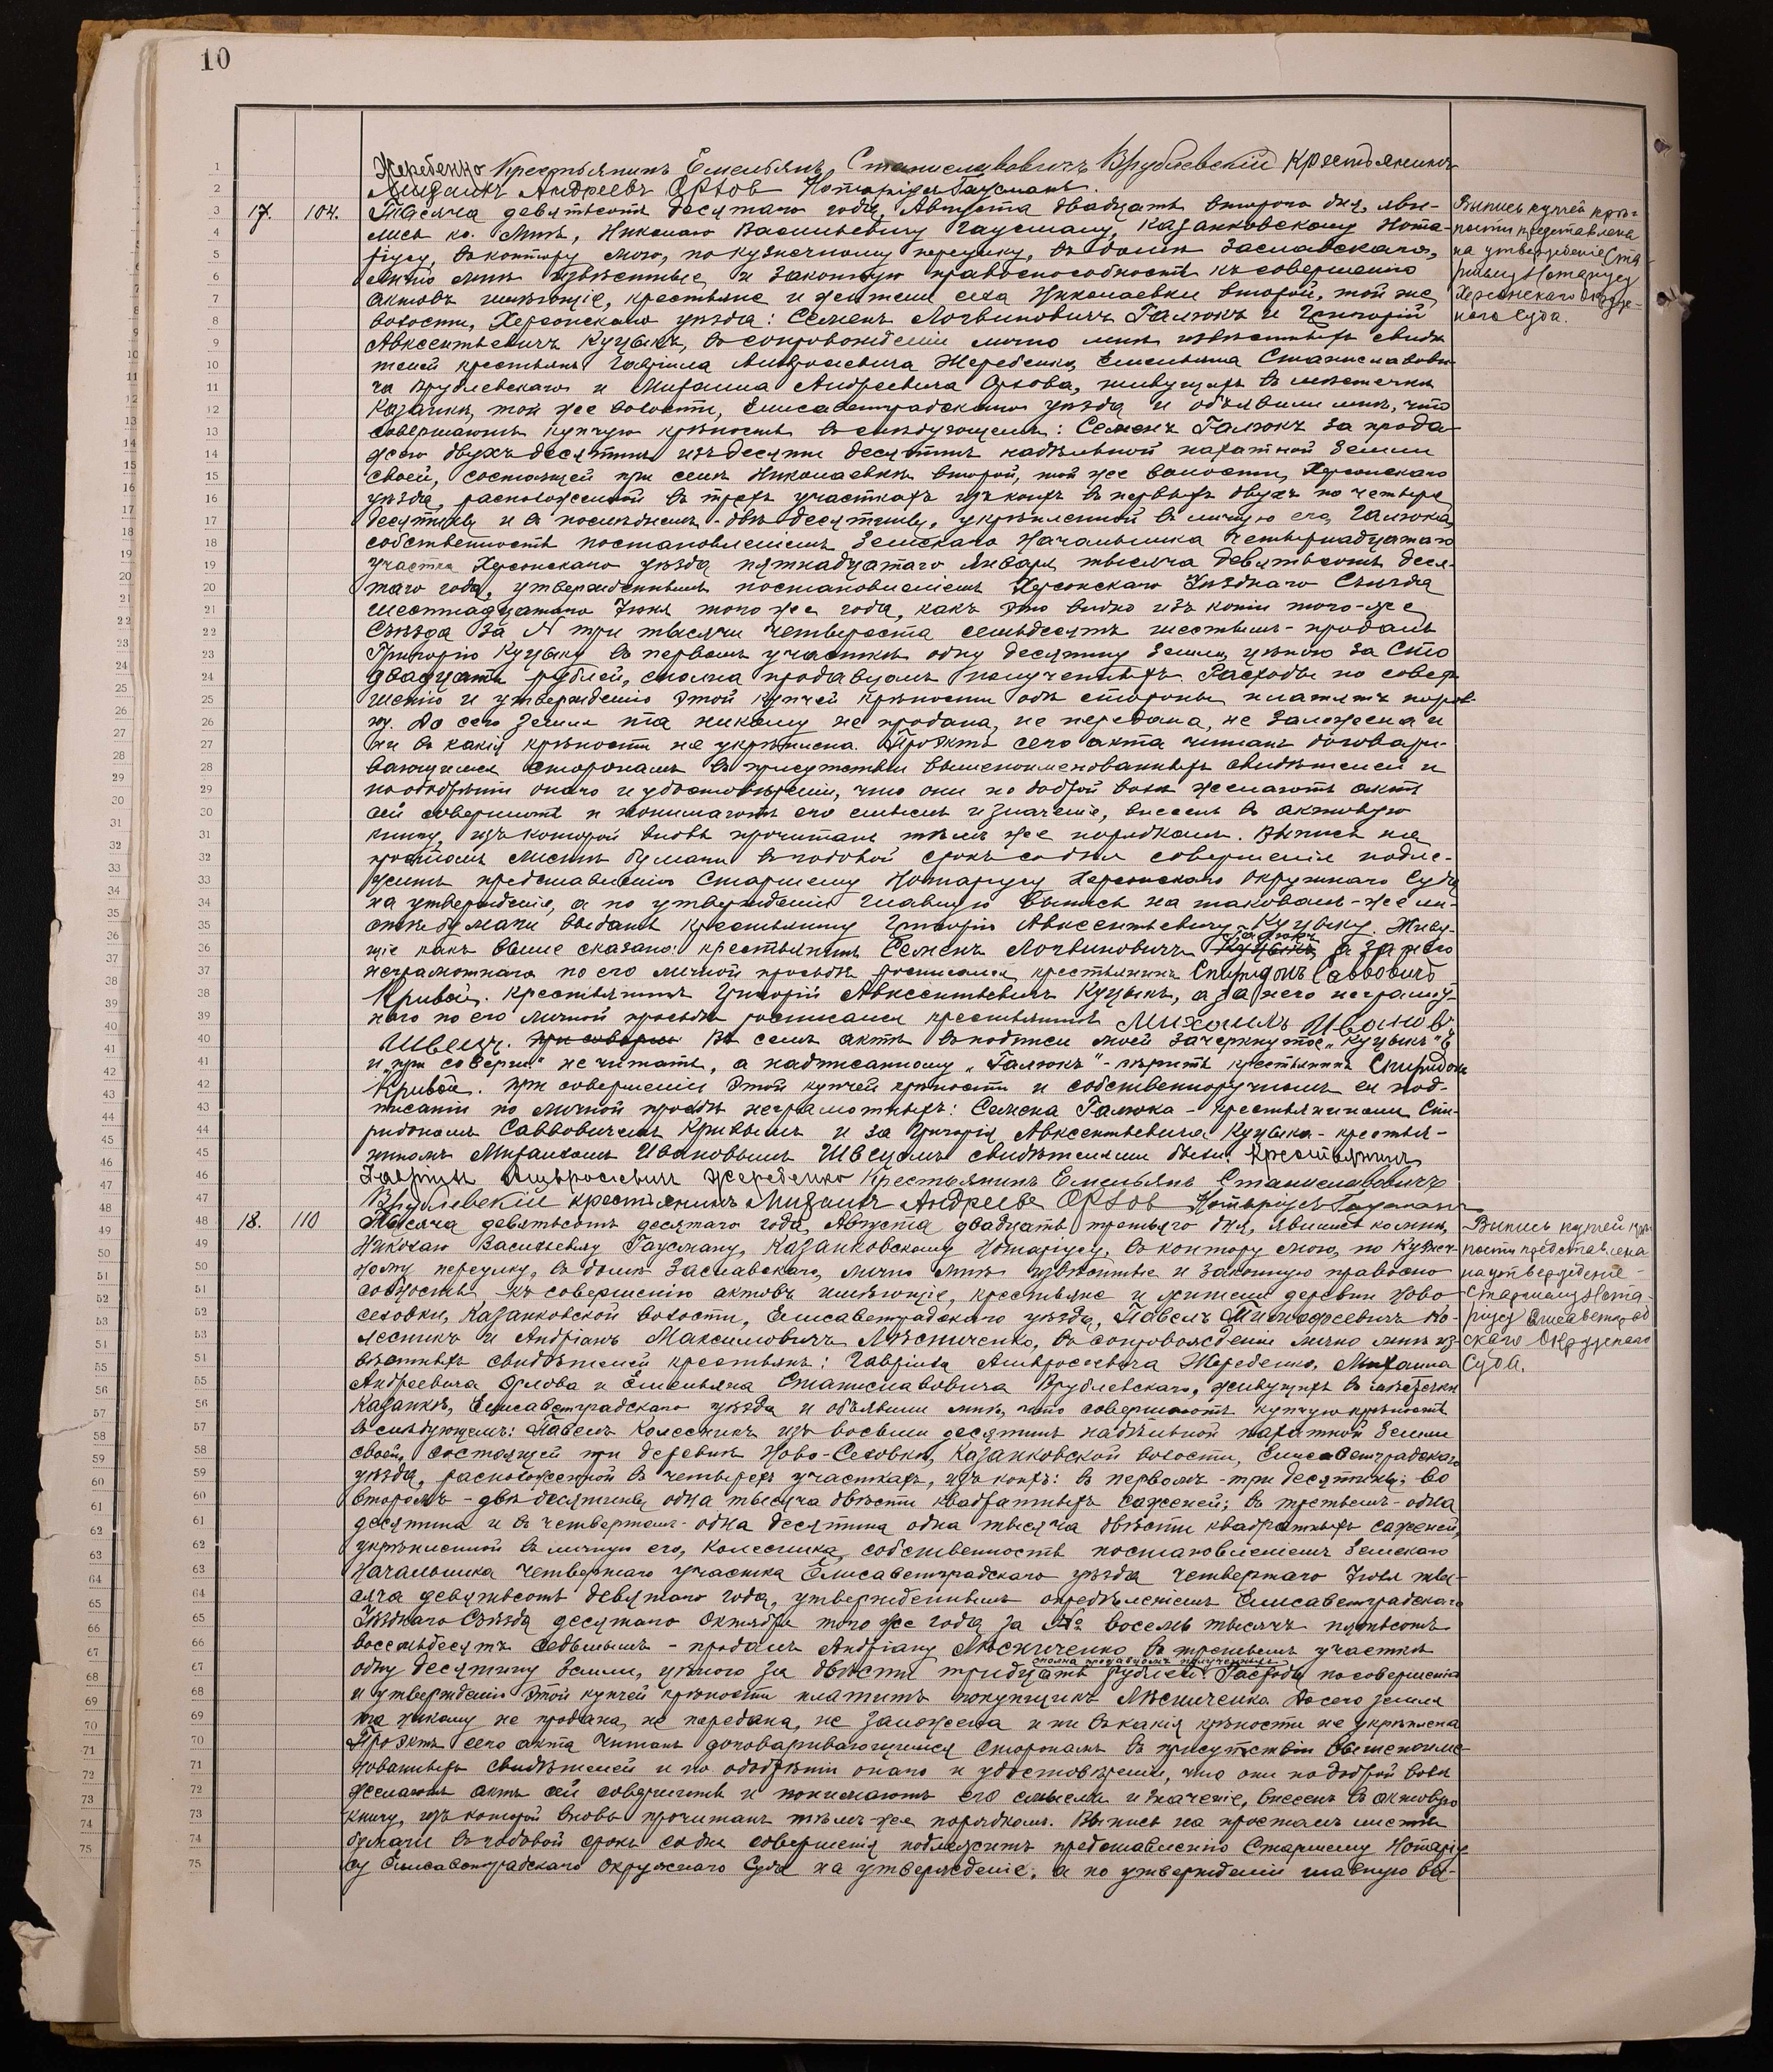 10
Жеребенко Крестьянинъ Емельянъ Станиславовичъ Врублевскій Крестьянинъ
Михаилъ Андреевъ Орловъ Нотаріусъ Гаусманъ.
17. 104. Тысяча девятьсотъ десятаго года, Августа двадцать второго дня, яви-
лись ко мнѣ, Николаю Васильевичу Гаусману, Казанковскому Нота-
ріусу, въ контору мою, по кузнечному переулку, въ домѣ Заславскаго,
лично мнѣ извѣстные и законную правоспособность къ совершенію
актовъ имѣющіе, крестьяне и жители села Николаевки второй, той же
волости, Херсонскаго уѣзда: Семенъ Логвиновичъ Галюкъ и Григорій
Авксентьевичъ Куцыкъ, въ сопровожденіи лично мнѣ извѣстныхъ свидѣ
телей крестьянъ Гавріила Амвросіевича Жеребенко, Емельяна Станиславови-
ча Врублевскаго и Михаила Андреевича Орлова, живущихъ въ мѣстечкѣ
Казанкѣ, той же волости, Елисаветградскаго уѣзда и объявили мнѣ, что
совершаютъ купчую крѣпость въ слѣдующемъ: Семенъ Галюкъ за прода-
жею двухъ десятинъ изъ десяти десятинъ надѣльной пахатной земли
своей, состоящей при селѣ Николаевкѣ второй, той же волости, Херсонскаго
уѣзда, расположенной въ трехъ участкахъ изъ коихъ въ первыхъ двухъ по четыре
десятины и въ послѣднемъ - двѣ десятины, укрѣпленной въ личную его, Галюка,
собственность постановленіемъ Земскаго Начальника Четырнадцатаго
участка Херсонскаго уѣзда пятнадцатаго Января тысяча девятьсотъ деся-
таго года, утвержденнымъ постановленіемъ Херсонскаго Уѣзднаго Съѣзда
шестнадцатаго Іюня того же года, какъ это видно изъ копіи того-же
Съѣзда за № три тысячи четыреста семьдесятъ шестымъ - продалъ
Григорію Куцыку въ первомъ участкѣ одну десятину земли, цѣною за сто
двадцать рублей, сполна продавцомъ полученныхъ. Расходы по совер-
шенію и утвержденію этой купчей крѣпости обѣ стороны платятъ поров-
ну. До сего земля та никому не продана, не передана, не заложена и
ни въ какія крѣпости не укрѣплена. Проэктъ сего акта читанъ договари-
вающимся сторонамъ въ присутствіи вышепоименованныхъ свидѣтелей и
по одобреніи онаго и удостовѣреніи, что они по доброй волѣ желаютъ актъ
сей совершить и понимаютъ его смыслъ и значеніе, внесенъ въ актовую
книгу, изъ которой вновь прочитанъ тѣмъ же порядкомъ. Выпись на
простомъ листѣ бумаги въ годовой срокъ со дня совершенія подле-
житъ представленію Старшему Нотаріусу Херсонскаго Окружнаго Суда
на утвержденіе, а по утвержденіи главную выпись на таковомъ-же ли-
стѣ бумаги выдать крестьянину Григорію Авксентьевичу Куцыку. Живу-
щіе какъ выше сказано: крестьянинъ Семенъ Логвиновичъ Куцыкъ Галюкъ а за него
неграмотнаго по его личной просьбѣ росписался крестьянинъ Спиридонъ Саввовичъ
Кривой. Крестьянинъ Григорій Авксентьевичъ Куцыкъ, а за него неграмот-
наго по его личной просьбѣ росписался крестьянинъ Михаилъ Ивановъ
Швецъ. При соверш Въ семъ актѣ въ подписи моей зачеркнутое "Куцыкъ"
и "при соверш" не читать, а надписанному "Галюкъ" - вѣрить крестьянинъ Спиридонъ
Кривой. При совершеніи этой купчей крѣпости и собственноручномъ ея под-
писаніи по личной просьбѣ неграмотныхъ: Семена Галюка - крестьяниномъ Спи-
ридономъ Саввовичемъ Кривымъ и за Григорія Авксентьевича Куцыка - крестья-
ниномъ Михаиломъ Ивановымъ Швецомъ свидѣтелями были: Крестьянинъ
Гаврiилъ Амвросіевичъ Жеребенко Крестьянинъ Емельянъ Станиславовичъ
Врублевскій крестьянинъ Михаилъ Андреевъ Орловъ Нотаріусъ Гаусманъ
Выпись купчей крѣ-
пости представлена
на утвержденіе Ста-
ршему Нотаріусу
Херсонскаго Окруж-
наго Суда.
18. 110 Тысяча девятьсотъ десятаго года, Августа двадцать третьяго дня, явились ко мнѣ,
Николаю Васильевичу Гаусману, Казанковскому Нотаріусу, въ контору мою, по Кузнеч-
ному переулку, въ домѣ Заславскаго, лично мнѣ извѣстные и законную правоспо-
собность къ совершенію актовъ имѣющіе, крестьяне и жители деревни Ново-
селовки, Казанковской волости, Елисаветградскаго уѣзда, Павелъ Тимофеевичъ Ко-
лесникъ и Андріанъ Максимовичъ Лѣсниченко, въ сопровожденіи лично мнѣ из-
вѣстныхъ свидѣтелей крестьянъ: Гавріила Амвросіевича Жеребенко, Михаила
Андреевича Орлова и Емельяна Станиславовича Врублевскаго, живущихъ въ мѣстечкѣ
Казанкѣ, Елисаветградскаго уѣзда и объявили мнѣ, что совершаютъ купчую крѣпость
въ слѣдующемъ: Павелъ Колесникъ изъ восьми десятинъ надѣльной пахатной земли
своей, состоящей при деревнѣ Ново-Селовкѣ, Казанковской волости, Елисаветградскаго
уѣзда, расположенной въ четырехъ участкахъ, изъ коихъ: въ первомъ - три десятины; во
второмъ - двѣ десятины одна тысяча двѣсти квадратныхъ саженей; въ третьемъ - одна
десятина и въ четвертомъ - одна десятина одна тысяча двѣсти квадратныхъ саженей,
укрѣпленной въ личную его, Колесника, собственность постановленіемъ Земскаго
Начальника четвертаго участка Елисаветградскаго уѣзда четвертаго Іюля тыс-
яча девятьсотъ девятаго года, утвержденнымъ опредѣленіемъ Елисаветградскаго
Уѣзднаго Съѣзда десятаго Октября того же года за № восемь тысячъ пятьсотъ
восемьдесятъ седьмымъ - продалъ Андріану Лѣсниченко въ третьемъ участкѣ
одну десятину земли, цѣною за двѣсти тридцать рублей сполна продавцомъ полученныхъ. Расходы по совершенію
и утвержденію этой купчей крѣпости платитъ покупщикъ Лѣсниченко. До сего земля
та никому не продана, не передана, не заложена и ни въ какія крѣпости не укрѣплена
Проэктъ сего акта читанъ договаривающимся сторонамъ въ присутствіи вышепоиме-
нованныхъ свидѣтелей и по одобреніи онаго и удостовѣреніи, что они по доброй волѣ
желаютъ актъ сей совершить и понимаютъ его смыслъ и значеніе, внесенъ въ актовую
книгу, изъ которой вновь прочитанъ тѣмъ-же порядкомъ. Выпись на простомъ листѣ
бумаги въ годовой срокъ со дня совершенія подлежитъ представленію Старшему Нотаріу
су Елисаветградскаго Окружнаго Суда на утвержденіе, а по утвержденіи главную вы-
Выпись купчей крѣ-
пости представлена
на утвержденіе
Старшему Нота-
ріусу Елисаветград
скаго Окружнаго
Суда.